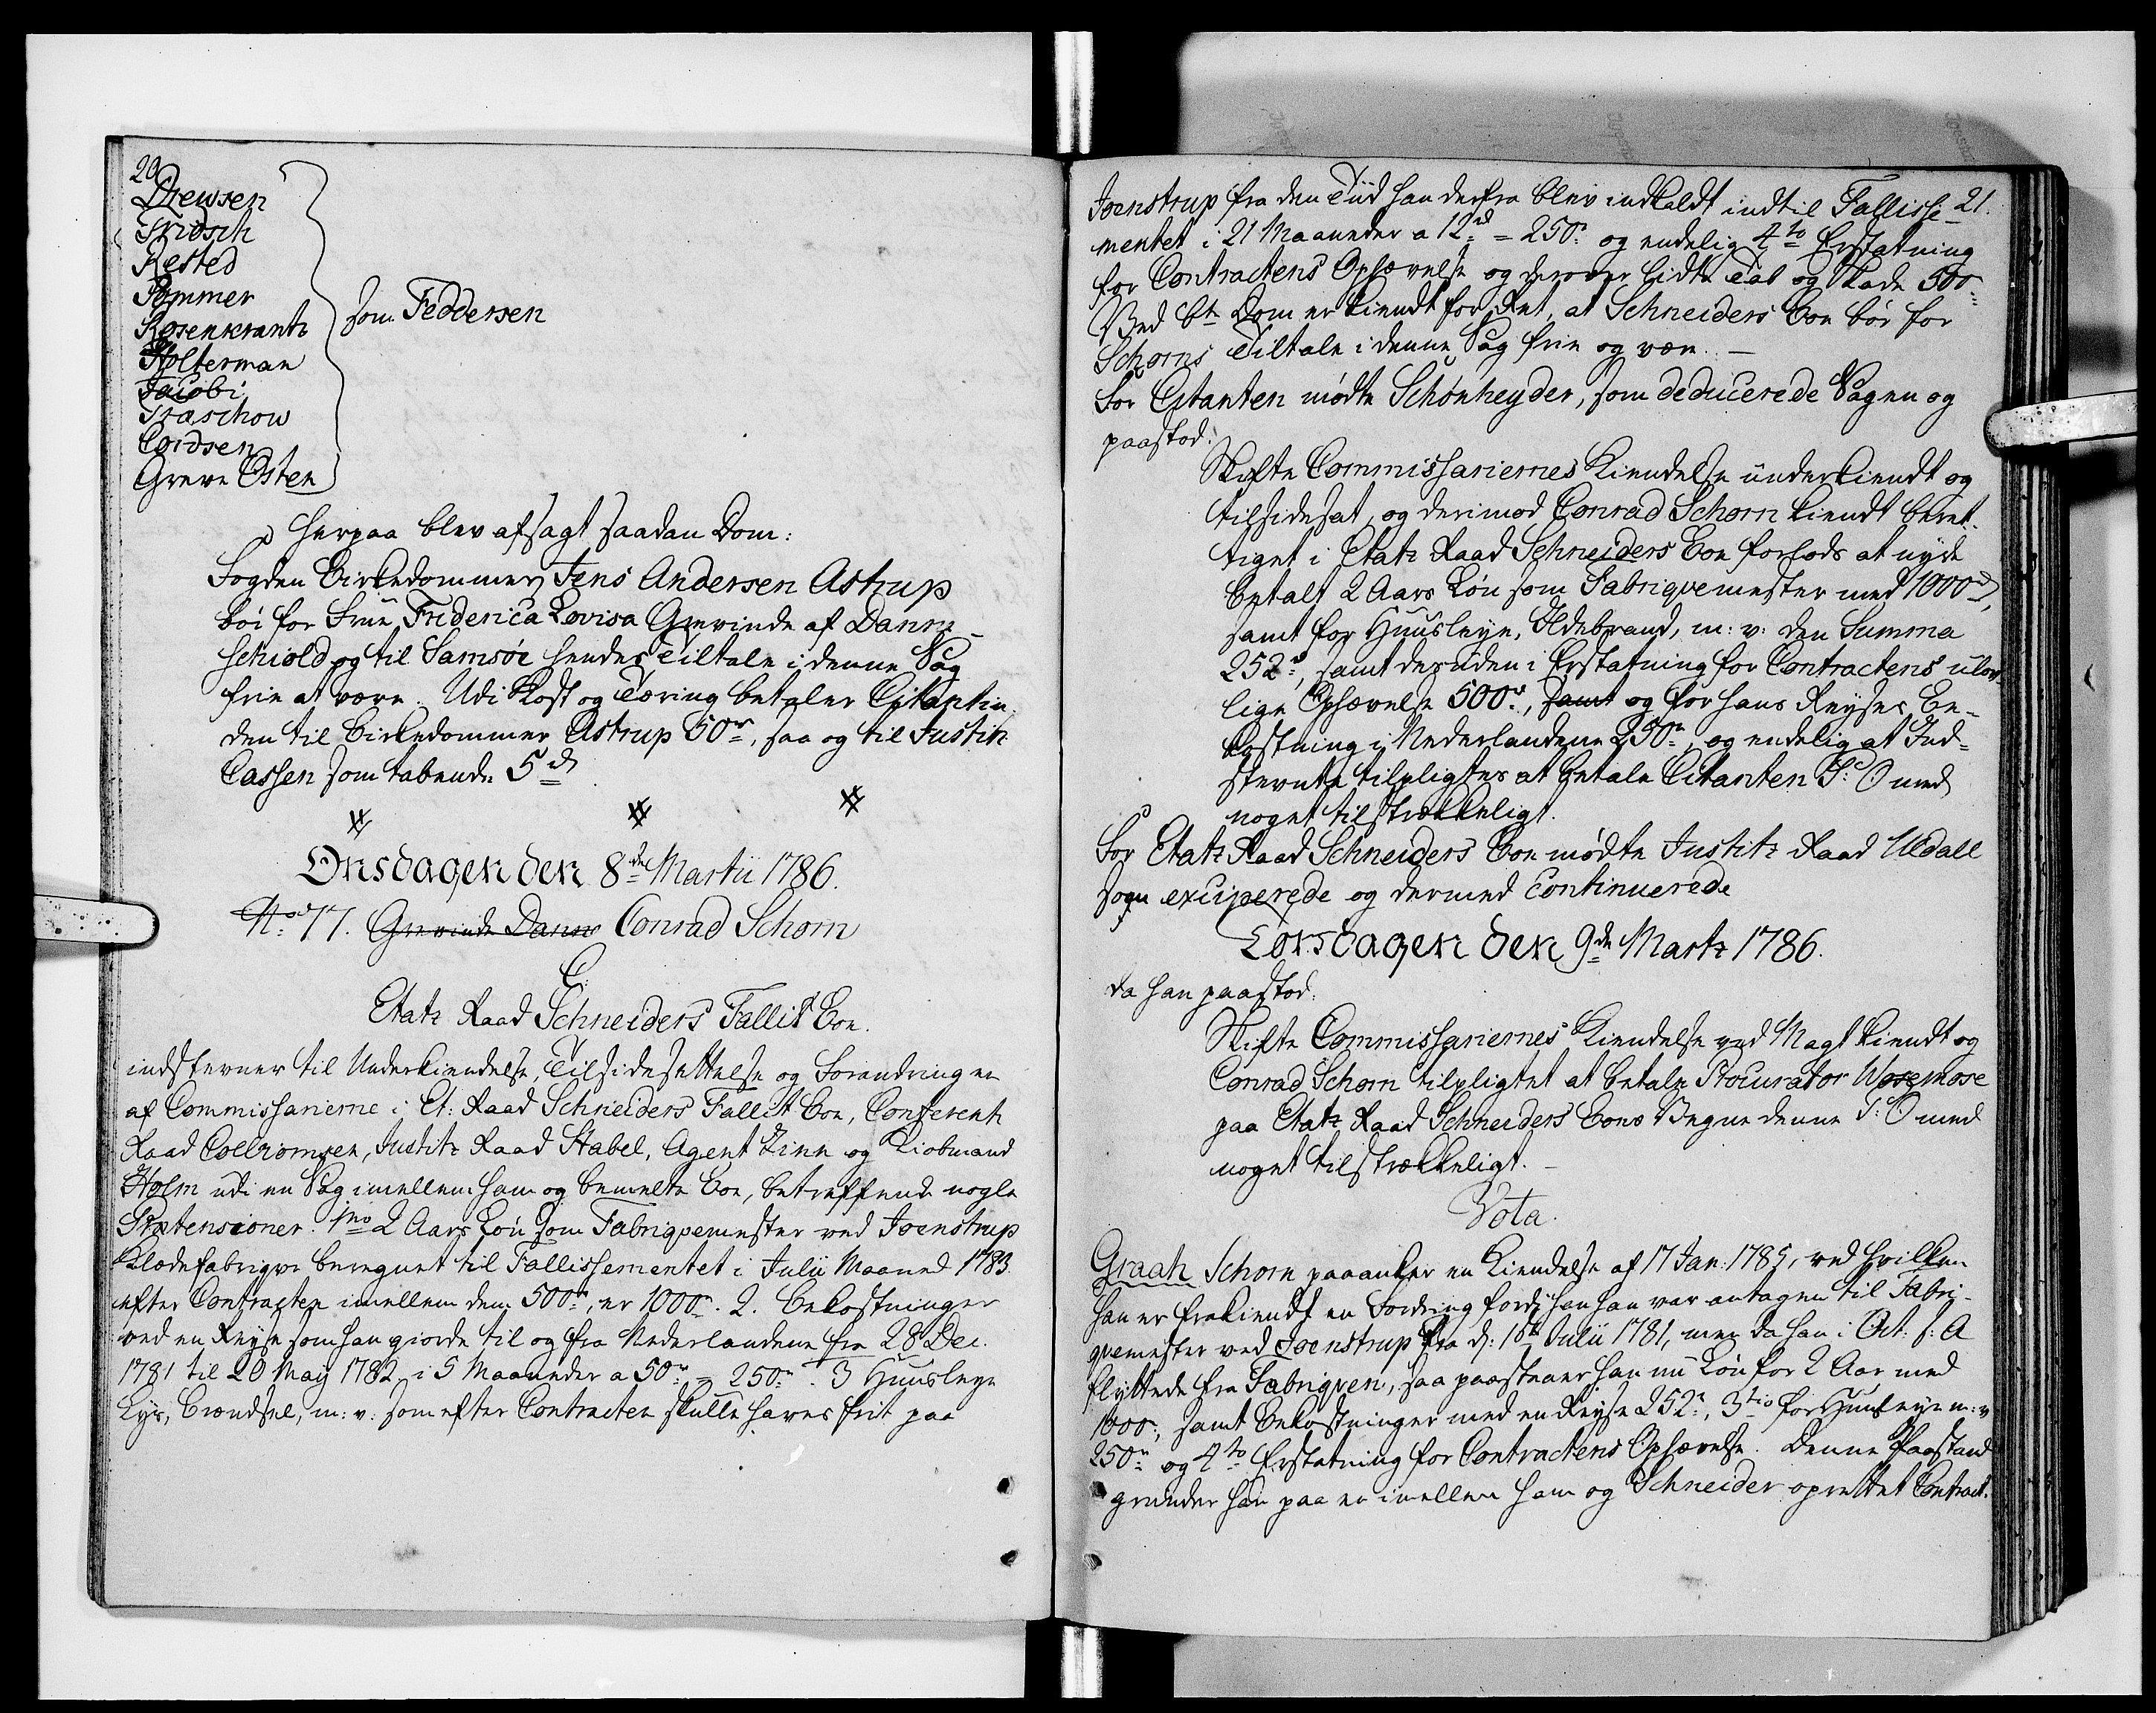 20
Drewsen
Fridsch
Rested
Pommer
Rosenkrantz
Holterman
Jacobi
Træschow
Cordsen
Greve Osten
som Feddersen
Herpaa blev afsagt saadan Dom:
Fogden Birkedommer Jens Andersen Astrup
bør for Frue Friderica Lovisa Grevinde af Danne-
schiold og til Samsøe hendes Tiltale i denne Sag
frie at være. Udi Kost og Tæring betaler Citantin-
den til Birkedommer Astrup 50rd, saa og til Justitz
Cassen som tabende 5rd
Onsdagen den 8de Martii 1786.
No 77. Grevinde Danne Conrad Schorn
C.
Etatz Raad Schneiders Fallit Boe.
indstevner til Underkiendelse, Tilsidesættelse og Forandring en
af Commissarierne i Et: Raad Schneiders Fallit Boe, Conferentz
Raad Colbiørnsen, Justitz Raad Stabel, Agent Zinn og Kiøbmand
Holm udi en Sag imellem ham og bemelte Boe, betreffende nogle
Prætensioner. 1mo 2 Aars Løn som Fabriqvemester ved Joenstrup
Klædefabriqve beregnet til Fallissementet i Julii Maaned 1783
efter Contracten imellem dem 500rd, er 1000rd. 2. Bekostninger
ved en Reyse som han giorde til og fra Nederlandene fra 28 Dec.
1781 til 20 May 1782, i 5 Maaneder a 50rd = 250rd. 3 Huusleye
Lys, Brændsel, m: v: som efter Contracten skulle haves frit paa
21.
Joenstrup fra den Tiid han derfra blev indkaldt indtil Fallisse-
mentet i 21 Maaneder a 12rd = 250rd og endelig 4to Erstatning
for Contractens Ophævelse og derover lidte Tab og Skade 500rd
Ved bte Dom er kiendt for Ret, at Schneiders Boe bør for
Schorns Tiltale i denne Sag frie og være. —
For Citanten mødte Schønheyder, som deducerede Sagen og
paastod:
Skifte Commissariernes Kiendelse underkiendt og
tilsidesat, og derimod Conrad Schorn kiendt beret-
tiget i Etatz Raad Schneiders Boe forlods at nyde
betalt 2 Aars Løn som Fabriqvemester med 1000rd,
samt for Huusleye, Ildebrand, m: v: den Summa
252rd, samt desuden i Erstatning for Contractens ulov-
lige Ophævelse 500rd, samt og for hans Reyses Be-
kostning i Nederlandene 250rd, og endelig at Ind-
stevnte tilpligtes at betale Citanten P: O med
noget tilstrækkeligt.
For Etatz Raad Schneiders Boe mødte Justitz Raad Uldall
som exciperede og dermed continuerede
Torsdagen den 9de Martz 1786.
da han paastod:
Skifte Commissariernes Kiendelse ved Magt kiendt og
Conrad Schorn tilpligtet at betale Procurator Wosemose
paa Etatz Raad Schneiders Boes Vegne denne P: O med
noget tilstrækkeligt. —
Vota.
Graah Schorn paaanker en Kiendelse af 17 Jan: 1785, ved hvilken
han er frakiendt en Fordring fordi han var antagen til Fabri-
qvemester ved Joenstrup fra d: 1ste Julii 1781, men da han i Oct: s: A
flyttede fra Fabriqven, saa paastaaer han nu Løn for 2 Aar med
1000rd, samt Bekostninger med en Reyse 252rd, 3tio for Huusleye m: v
250rd og 4to Erstatning for Contractens Ophævelse. Denne Paastand
grunder han paa en imellem ham og Schneider oprettet Contract.